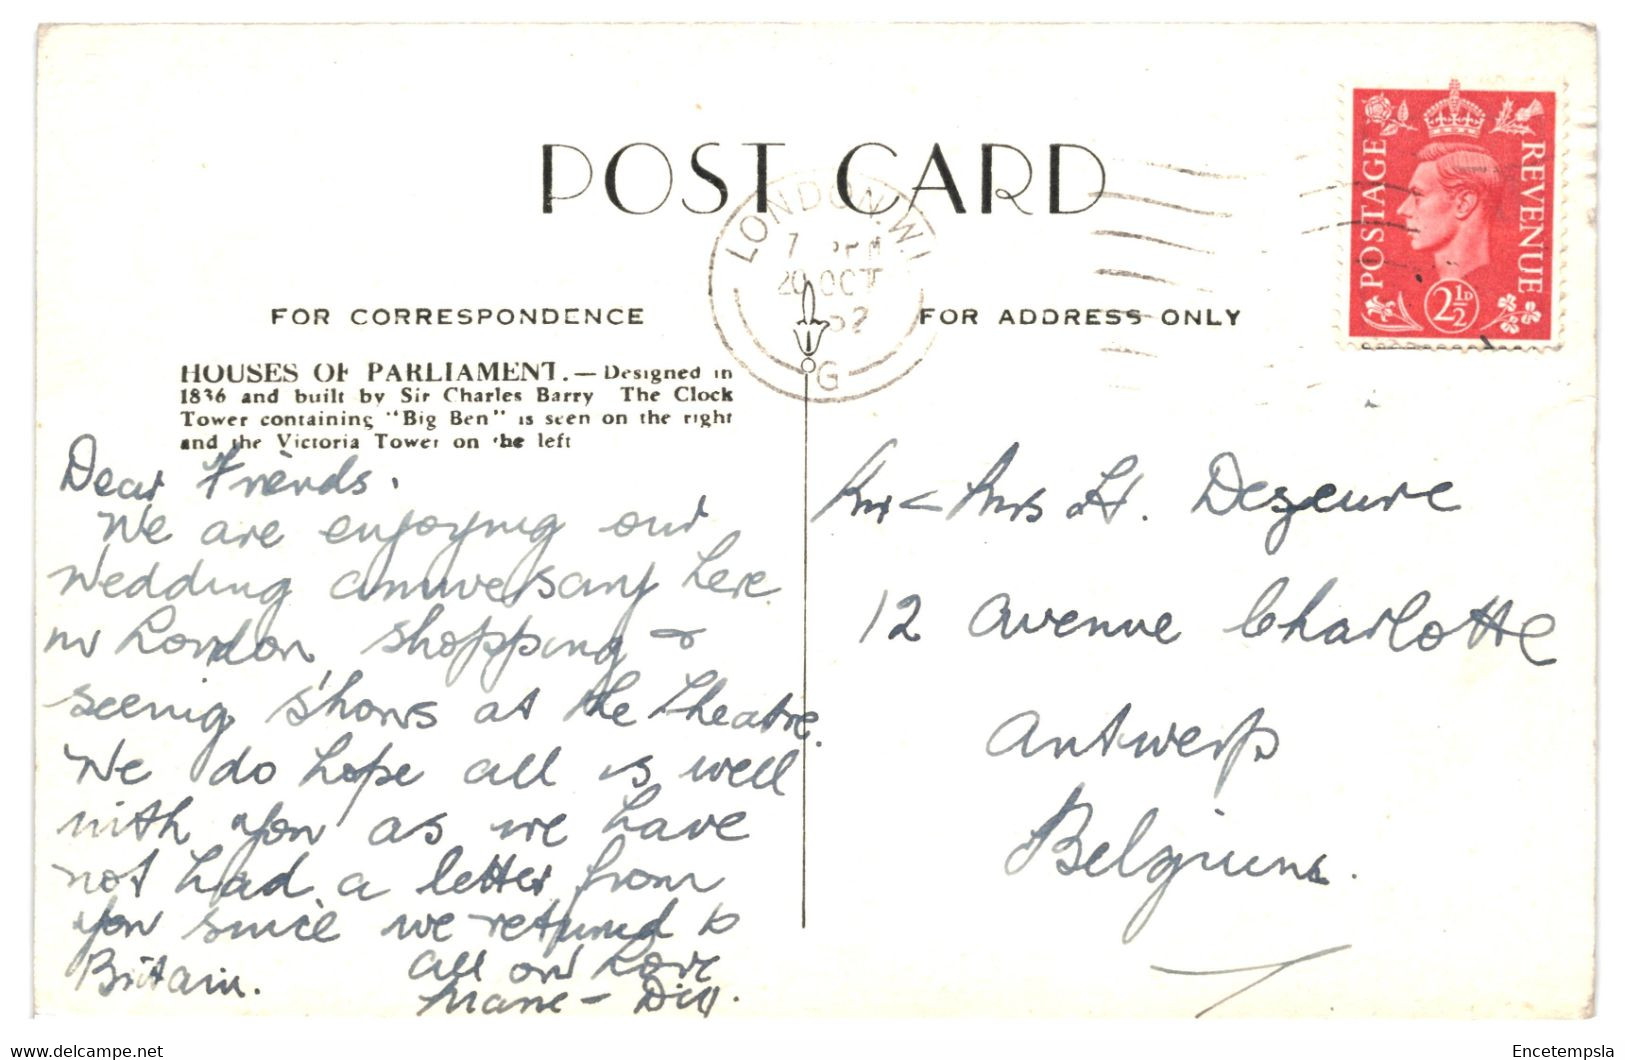 POST CARD
LONDON. W1
7 PM
20 OCT
52
G
POSTAGE
REVENUE
2½D
FOR CORRESPONDENCE
FOR ADDRESS ONLY
HOUSES OF PARLIAMENT.— Designed in
1836 and built by Sir Charles Barry The Clock
Tower containing "Big Ben" is seen on the right
and the Victoria Tower on the left
Dear Friends.
We are enjoying our
wedding anniversary here
in London, shopping &
seeing shows at the theatre.
We do hope all is well
with you as we have
not had a letter from
you since we returned to
Britain.
all our Love
Marie – 
Mr & Mrs H. Dezeure
12 Avenue Charlotte
Antwerp
Belgium.
www.delcampe.net
Encetempsla